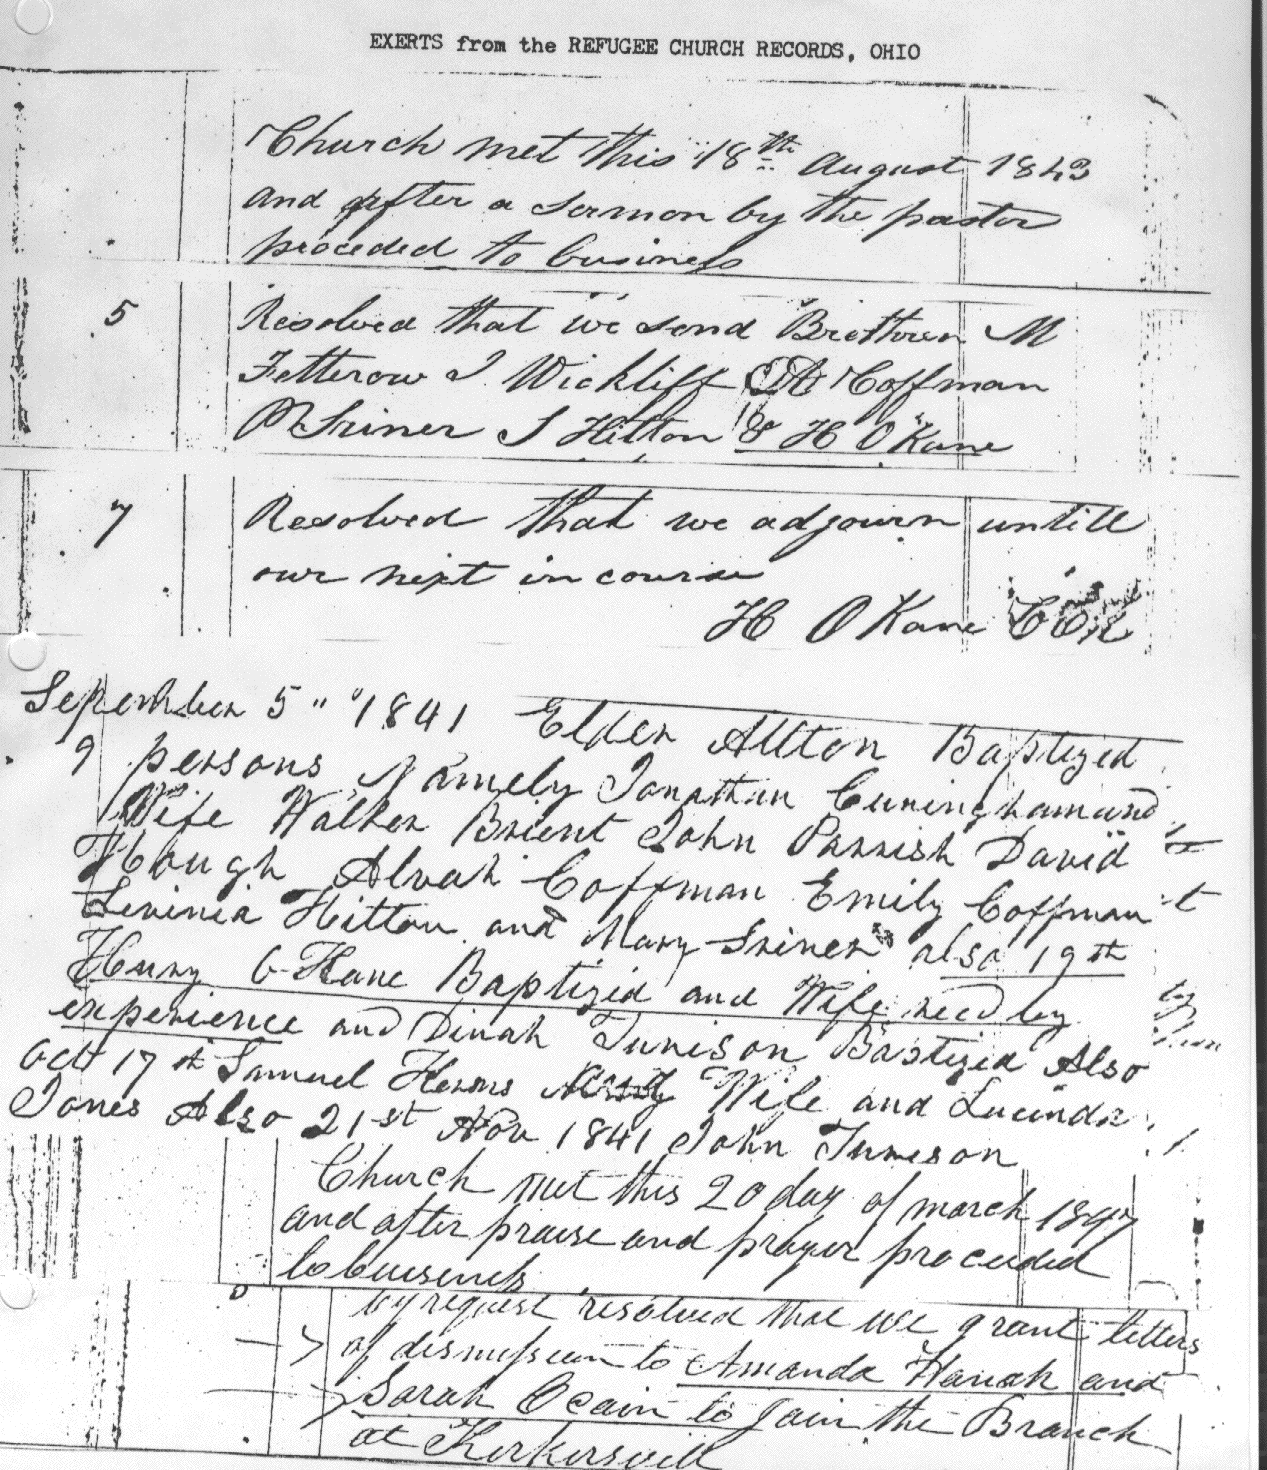 EXERTS from the REFUGEE CHURCH RECORDS, OHIO
Church met this 18th August 1843
and after a sermon by the pastor
proceded to business
5 Resolved that we send Brethren M
Fetterow J. Wickliff A Coffman
P Sriner S Hitton & H O Kane
7 Resolved that we adjourn untill
our next in course
H O Kane
September 5" 1841 Elder Allton Baptized
9 persons Namely Jonathan Cuningham and
Wife Walker Brient John Parrish David
Hough Alvah Coffman Emily Coffman
Levinia Hitton and Mary Sriner also 19th
Henry O-Kane Baptizid and Wife recd by
experience and Dinah Tunison Baptizid Also
Oct 17th Samuel Wife and Lucinda
Jones Also 21st Nov 1841 John Tunison
Church met this 20 day of march 1847
and after praise and prayer proceeded
to buisness
by request resolved that we grant letters
of dismission to Amanda Hanah and
Sarah Ocain to Join the Branch
at Kirkersvill